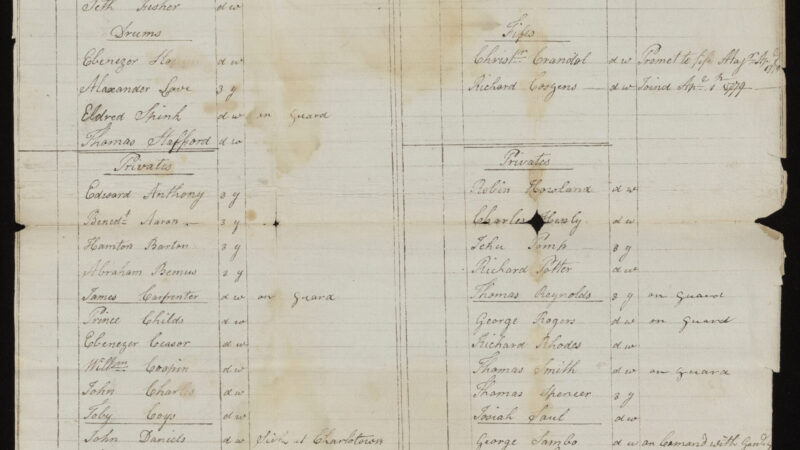 Seth Fisher d w
Drums
Ebenezer d w
Alaxander Love 3 y
Eldred Spink d w on Guard
Thomas Stafford d w
Privates
Edward Anthony 3 y
Bened.t Aaron 3 y
Hamton Barton 3 y
Abraham Bemus 3 y
James Carpenter d w on Guard
Prince Childs d w
Ebenezer Ceasor d w
Will.m Coopin d w
John Charles d w
Toby Coys d w
John Daniels d w Sick at Charlstown
Fifes
Christ.r Crandol d w Promet to fife
Richard Cozzens d w Joind Ap.l 1779
Privates
Robin Howland d w
Charles d w
Jehu Pomp 3 y
Richard Potter d w
Thomas Reynolds 3 y on Guard
George Rogers d w on Guard
Richard Rhodes d w
Thomas Smith d w on Guard
Thomas Spencer 3 y
Josiah Saul d w
George Sambo d w on Comand with